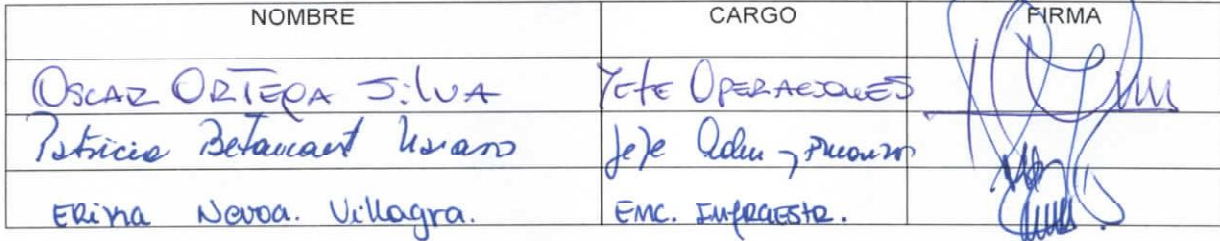 NOMBRE CARGO FIRMA
OSCAR ORTEGA SILVA JEFE OPERACIONES
Patricio Betancourt Jefe Adm y Finanzas
ERIKA Novoa. Villagra. ENC. INFRAESTR.